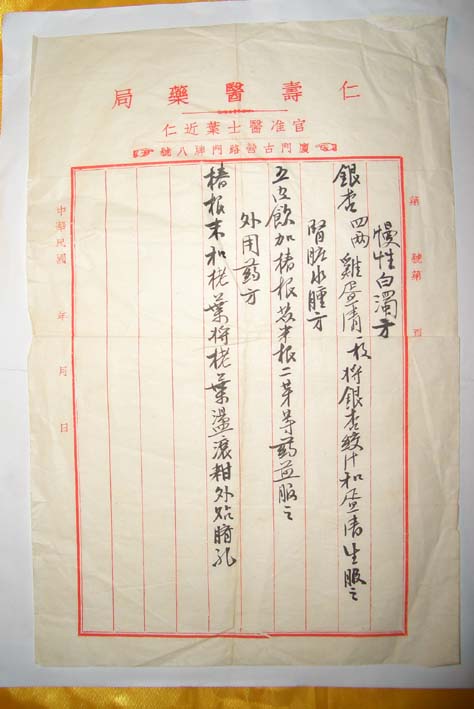 仁壽醫藥局
官准醫士葉近仁
廈門古營路門牌八號
第 號第 頁
慢性白濁方
銀杏四兩雞蛋清一枚將銀杏絞汁和蛋清生服之
腎脏水腫方
五皮飲加椿根 末根二 等药並服之
外用药方
椿根末和栳葉將栳葉盪滾柑外贴脐孔
中華民國 年 月 日